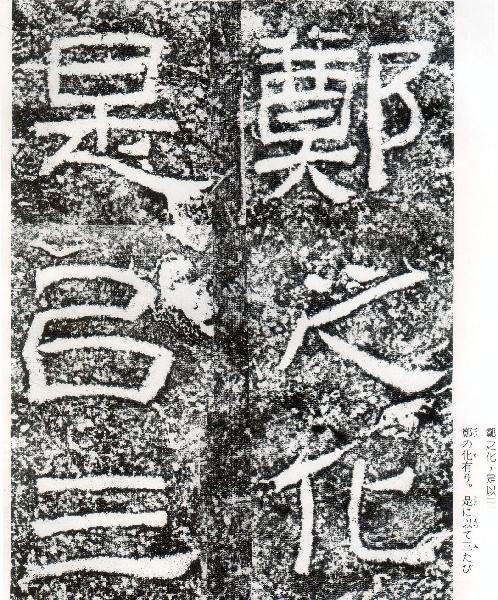 鄭之化
是㠯三
鄭之化。是以三
鄭の化有り。是に以て三たび